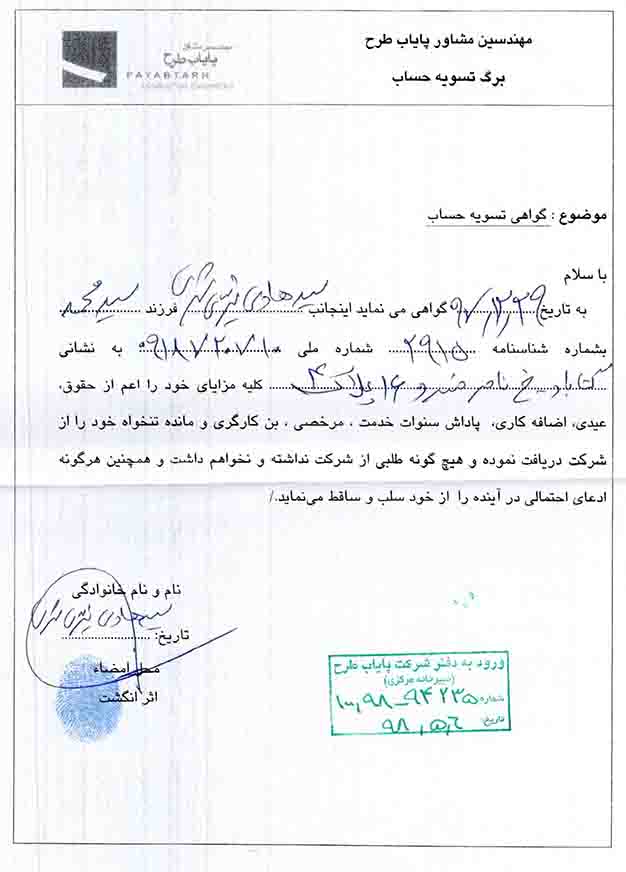 مهندسین مشاور پایاب طرح
برگ تسویه حساب
مهندسین مشاور
پایاب طرح
PAYABTARH
CONSULTING ENGINEERS
موضوع : گواهی تسویه حساب
با سلام
به تاریخ ۹۷/۱۲/۲۹ گواهی می نماید اینجانب سید هادی فرزند سید محمد
بشماره شناسنامه ۲۹۱۵ شماره ملی به نشانی
۱۶ پلاک ۴ کلیه مزایای خود را اعم از حقوق،
عیدی، اضافه کاری، پاداش سنوات خدمت، مرخصی ، بن کارگری و مانده تنخواه خود را از
شرکت دریافت نموده و هیچ گونه طلبی از شرکت نداشته و نخواهم داشت و همچنین هرگونه
ادعای احتمالی در آینده را از خود سلب و ساقط می‌نماید./
نام و نام خانوادگی
سید هادی
تاریخ:
محل امضاء
اثر انگشت
ورود به دفتر شرکت پایاب طرح
(دبیرخانه مرکزی)
شماره ۱۰,۹۸-۹۴۲۳۵
تاریخ: